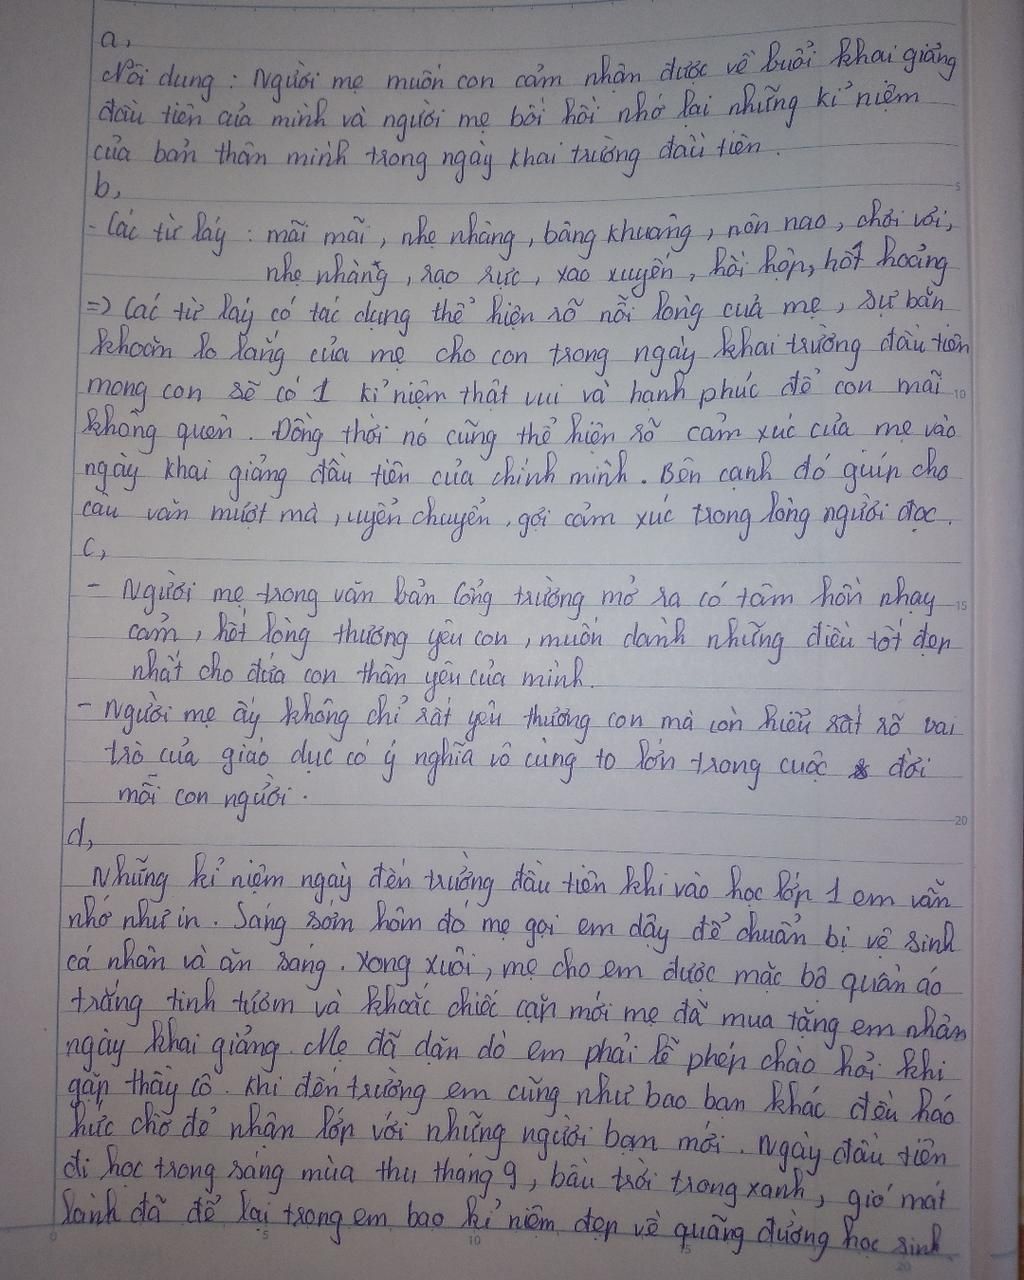 a,
Nội dung : Người mẹ muốn con cảm nhận được về buổi khai giảng
đầu tiên của mình và người mẹ bồi hồi nhớ lại những kỉ niệm
của bản thân mình trong ngày khai trường đầu tiên.
b,
- Các từ láy : mãi mãi, nhẹ nhàng, bâng khuâng, nôn nao, chơi vơi,
nhẹ nhàng, rạo rực, xao xuyến, hồi hộp, hốt hoảng
=> Các từ láy có tác dụng thể hiện rõ nỗi lòng của mẹ, sự băn
khoăn lo lắng của mẹ cho con trong ngày khai trường đầu tiên
mong con sẽ có 1 kỉ niệm thật vui và hạnh phúc để con mãi
không quên. Đồng thời nó cũng thể hiện rõ cảm xúc của mẹ vào
ngày khai giảng đầu tiên của chính mình. Bên cạnh đó giúp cho
câu văn mượt mà, uyển chuyển, gợi cảm xúc trong lòng người đọc.
c,
- Người mẹ trong văn bản Cổng trường mở ra có tâm hồn nhạy
cảm, hết lòng thương yêu con, muốn dành những điều tốt đẹp
nhất cho đứa con thân yêu của mình.
- Người mẹ ấy không chỉ rất yêu thương con mà còn hiểu rất rõ vai
trò của giáo dục có ý nghĩa vô cùng to lớn trong cuộc đời
mỗi con người.
d,
Những kỉ niệm ngày đến trường đầu tiên khi vào học lớp 1 em vẫn
nhớ như in. Sáng sớm hôm đó mẹ gọi em dậy để chuẩn bị vệ sinh
cá nhân và ăn sáng. Xong xuôi, mẹ cho em được mặc bộ quần áo
trắng tinh tươm và khoác chiếc cặp mới mẹ đã mua tặng em nhân
ngày khai giảng. Mẹ đã dặn dò em phải lễ phép chào hỏi khi
gặp thầy cô. Khi đến trường em cũng như bao bạn khác đều háo
hức chờ để nhận lớp với những người bạn mới. Ngày đầu tiên
đi học trong sáng mùa thu tháng 9, bầu trời trong xanh, gió mát
lành đã để lại trong em bao kỉ niệm đẹp về quãng đường học sinh